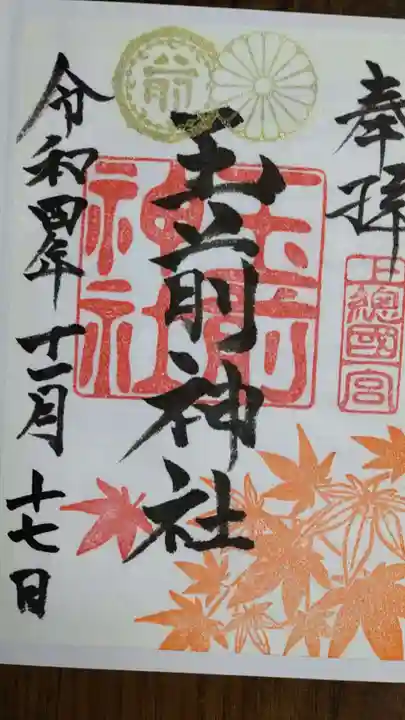 奉拝
上總國一宮
玉前神社
玉前神社
前
令和四年十一月十七日